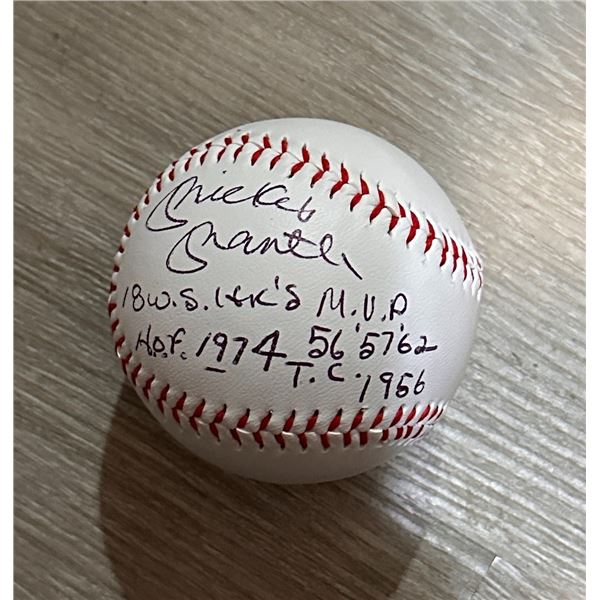 Mickey
Mantle
18 W.S. HR'S M.V.P
H.O.F. 1974 56'57'62
T.C. 1956